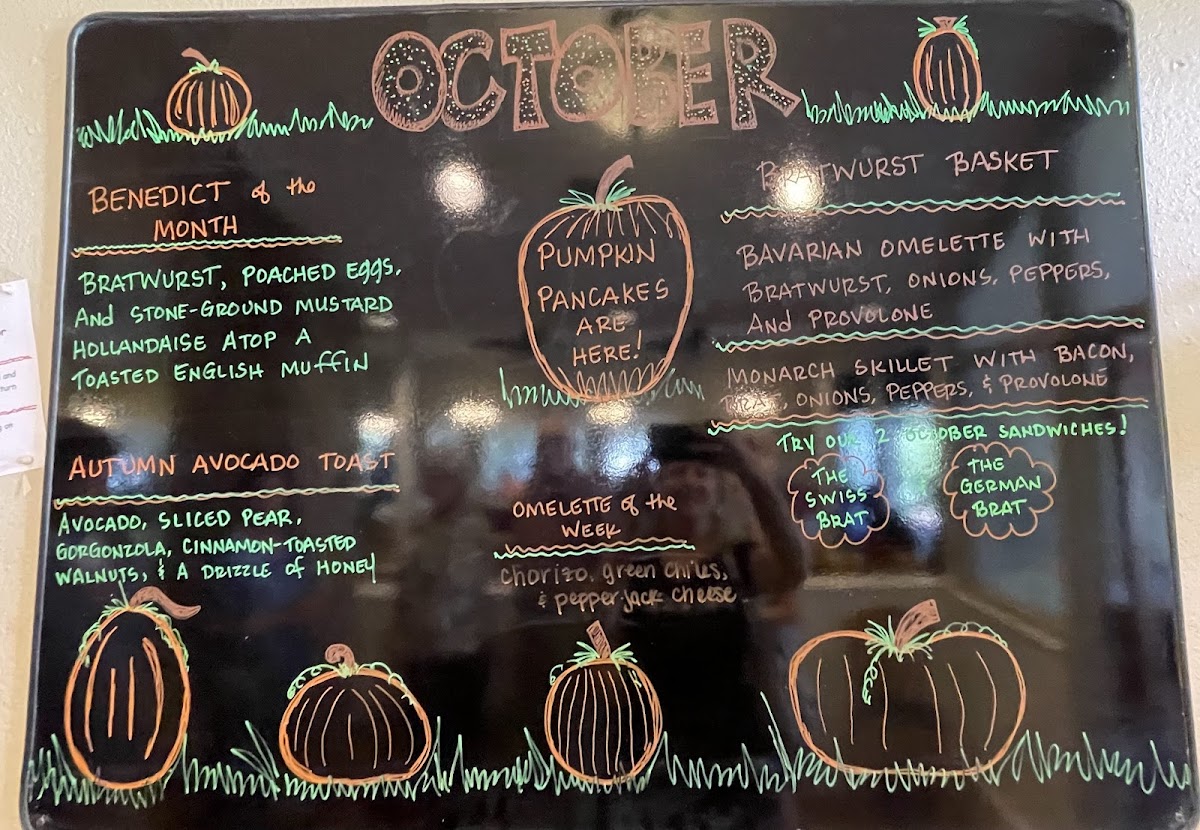 OCTOBER
BENEDICT of the
MONTH
BRATWURST, POACHED EggS,
And STONE-GROUND MUSTARD
HOLLANDAISE ATOP A
TOASTED ENGLISH MUffIN
AUTUMN AVOCADO TOAST
AVOCADO, SLICED PEAR,
GORGONZOLA, CINNAMON-TOASTED
WALNUTS, & A DRIZZLE of HONEY
PUMPKIN
PANCAKES
ARE
HERE!
OMELETTE of the
WEEK
chorizo, green chiles,
& pepper jack cheese
BRATWURST BASKET
BAVARIAN OMELETTE WITH
BRATWURST, ONIONS, PEPPERS,
And PROVOLONE
MONARCH SKILLET WITH BACON,
BRAT, ONIONS, PEPPERS, & PROVOLONE
TRY OUR 2 OCTOBER SANDWICHES!
THE
SWISS
BRAT
THE
GERMAN
BRAT
and
turn
on